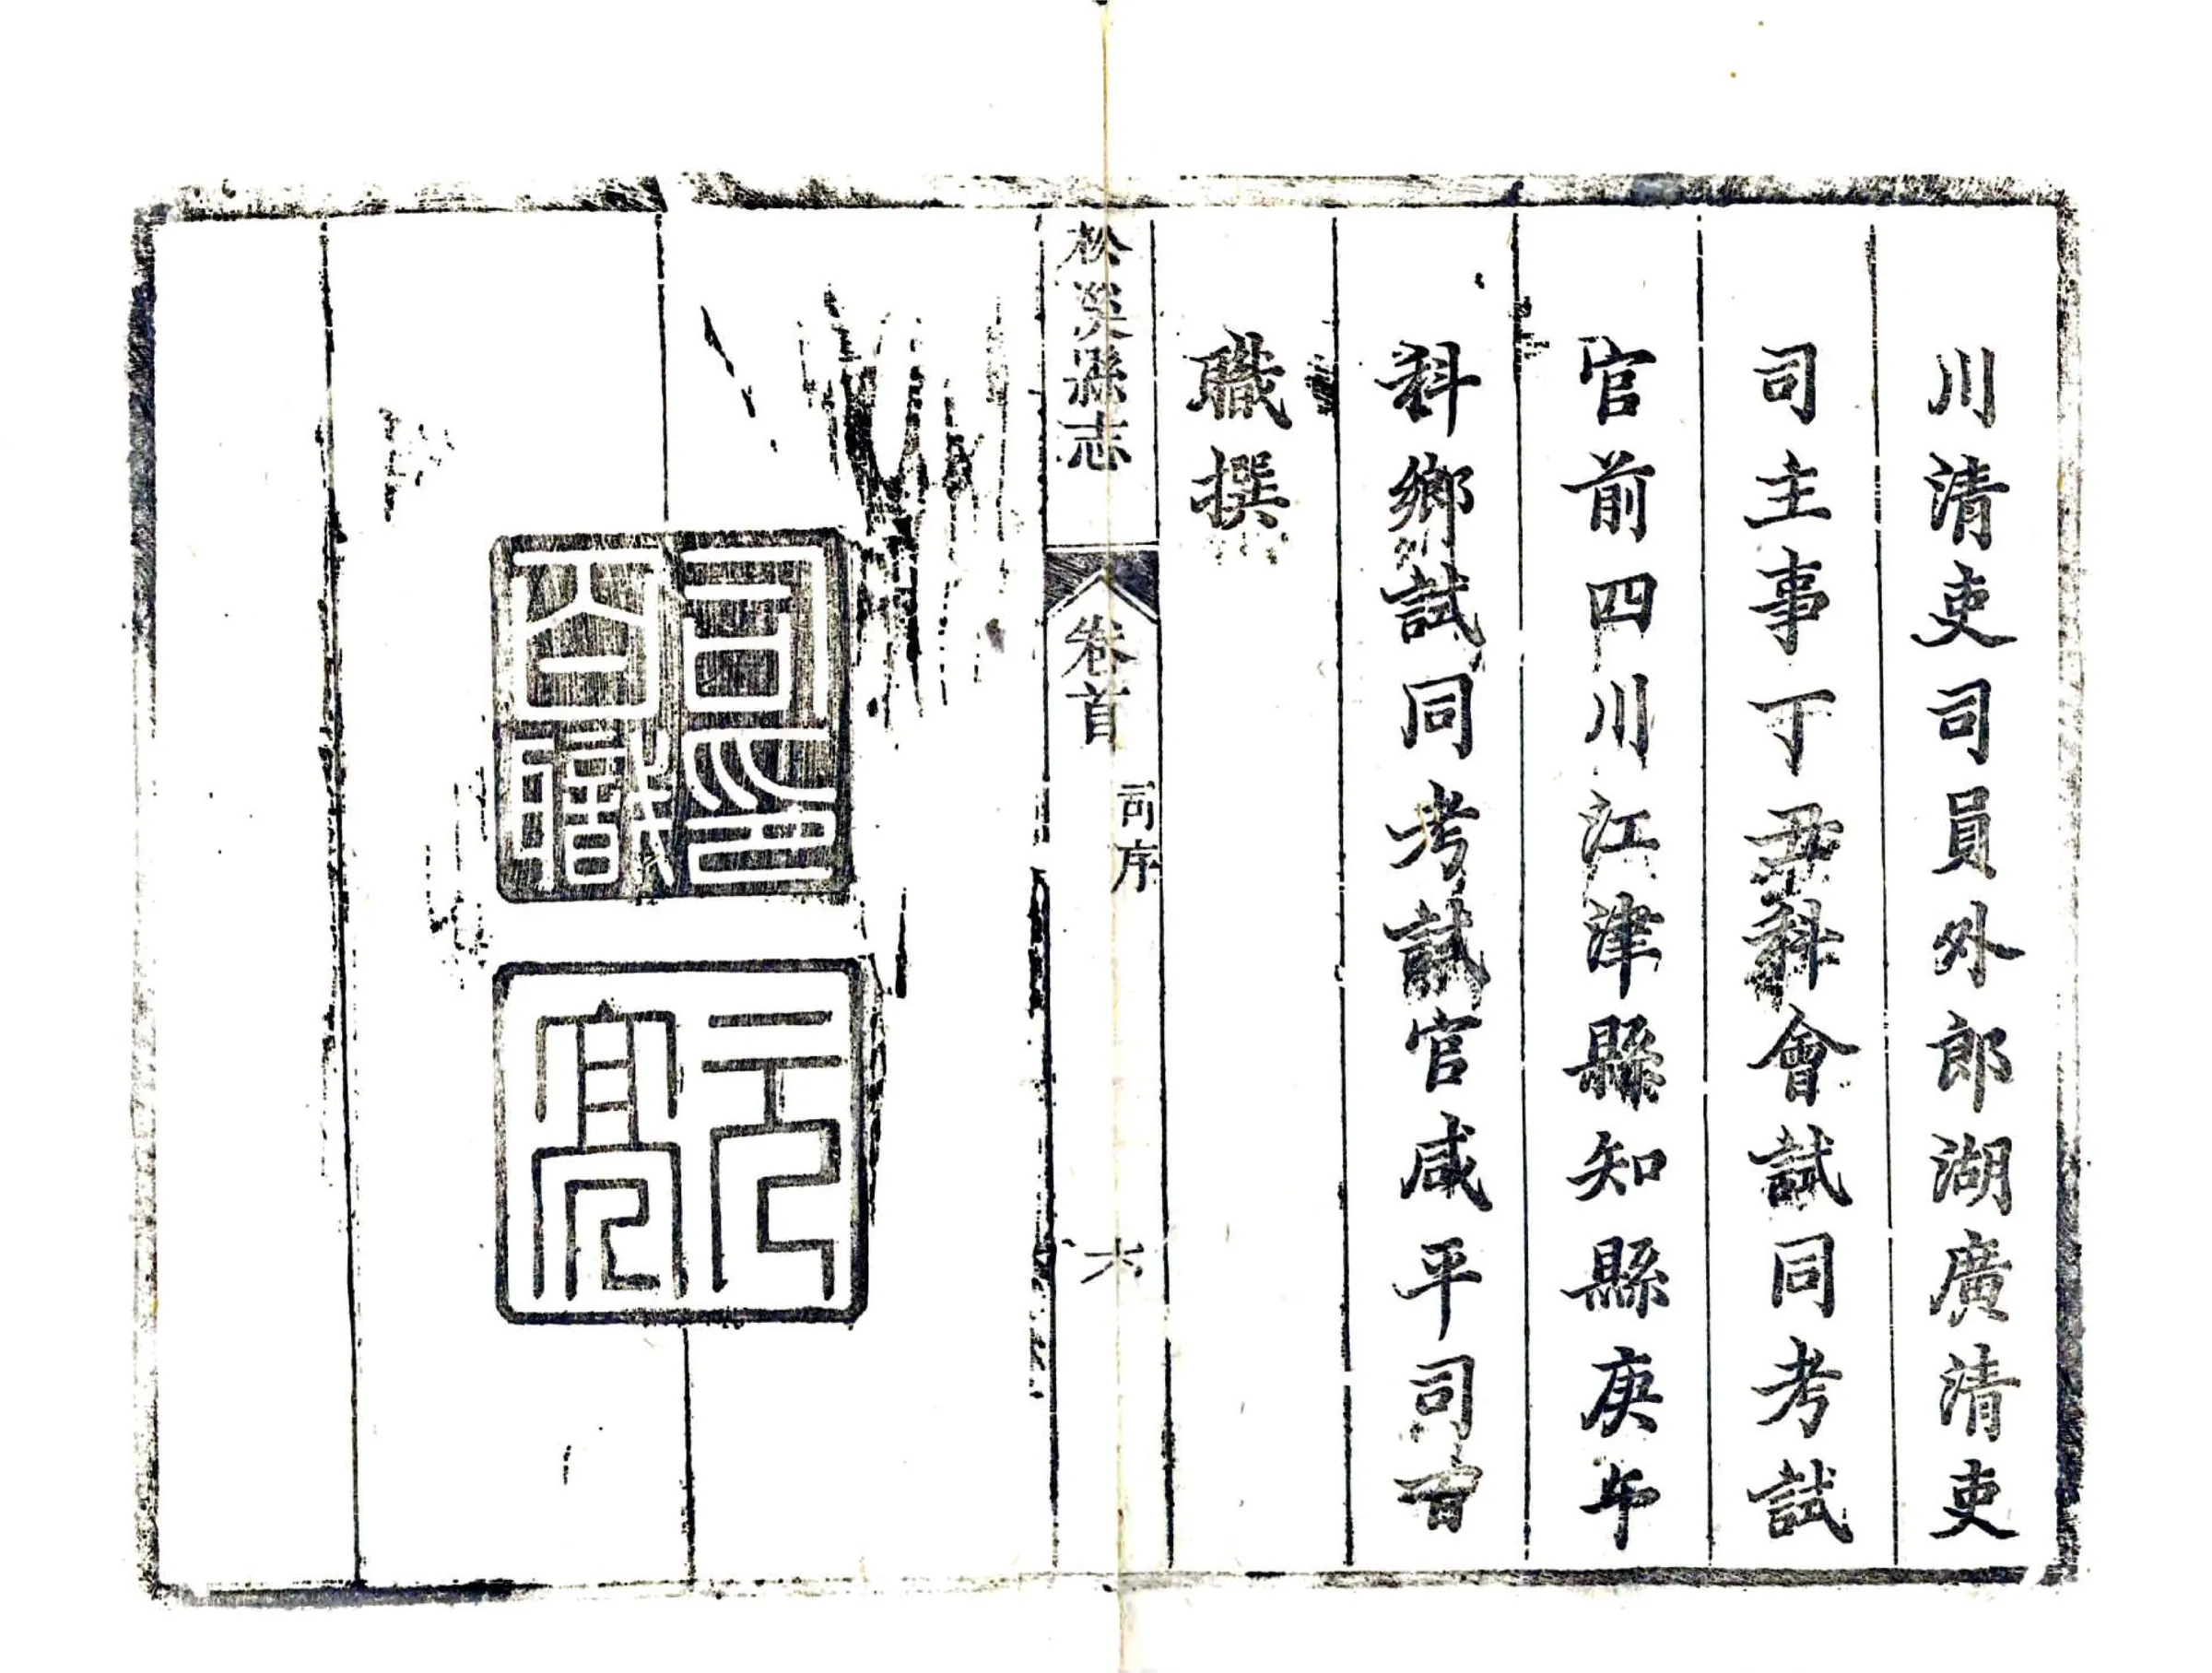 川清吏司員外郎湖廣清吏
司主事丁丑科會試同考試
官前四川江津縣知縣庚午
科鄉試同考試官咸平司百
職撰
松溪縣志
卷首
司序
六
司印百職
元亮